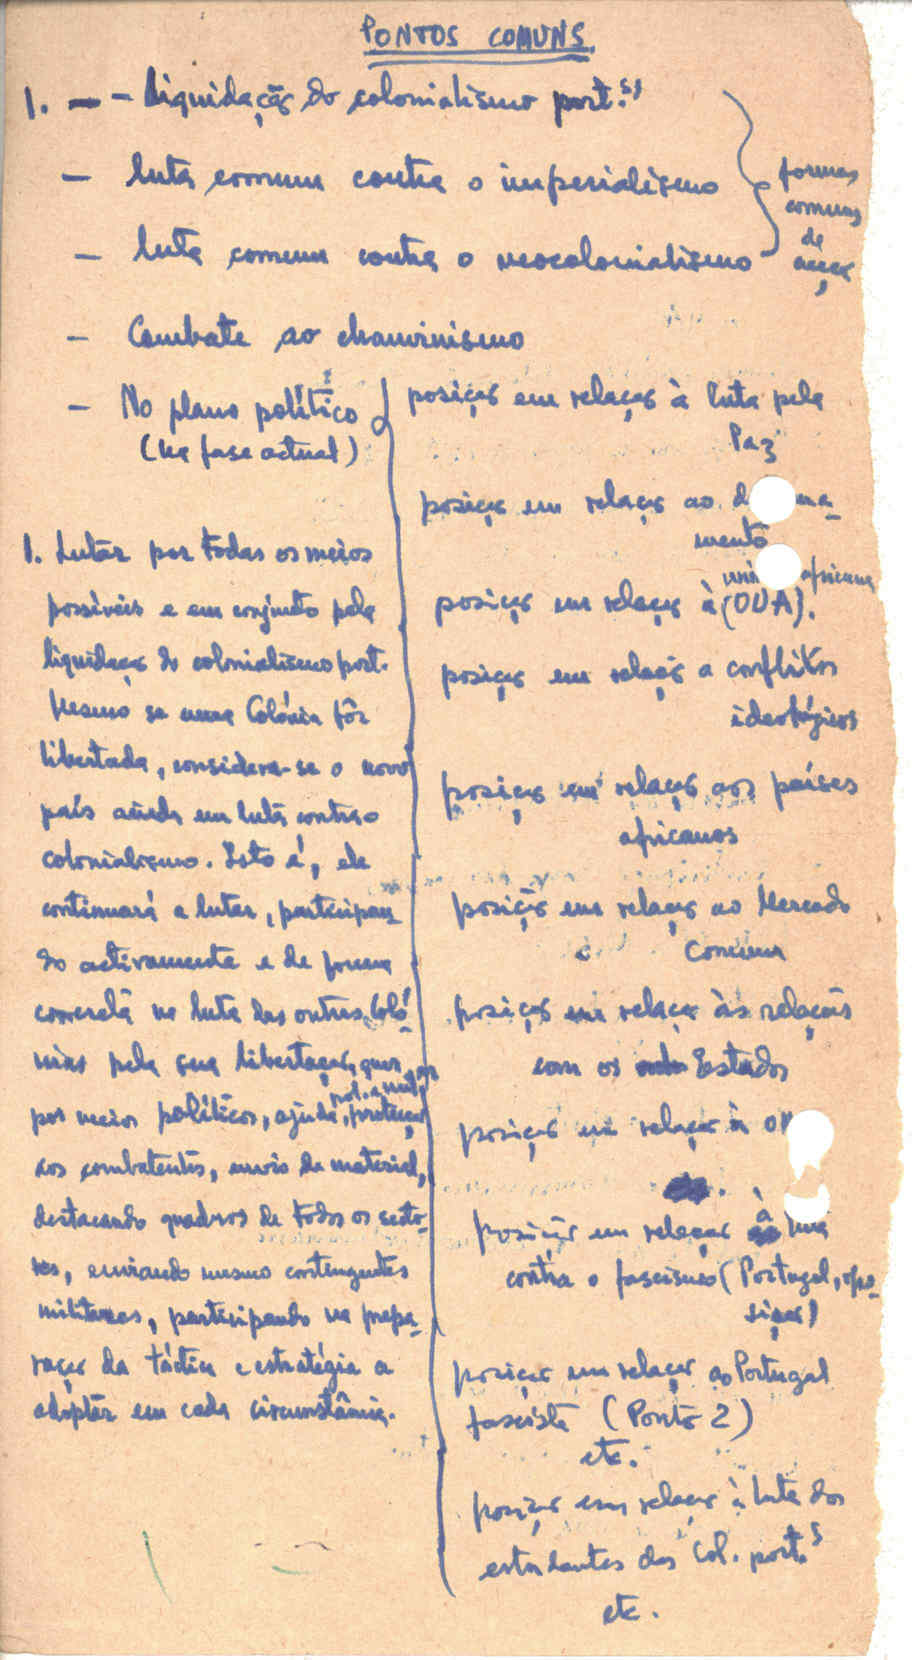 PONTOS COMUNS
1. – – Liquidação do colonialismo port.ês
– luta comum contra o imperialismo
– luta comum contra o neocolonialismo
formas
comuns
de
acção
– Combate ao chauvinismo
– No plano político
(na fase actual)
posição em relação à luta pela
Paz
posição em relação ao
mento
africana
posição em relação à (OUA).
posição em relação a conflitos
ideológicos
posição em relação aos países
africanos
posição em relação ao Mercado
Comum
posição em relação às relações
com os Estados
posição em relação à
posição em relação à luta
contra o fascismo (Portugal, opo-
sição)
posição em relação ao Portugal
fascista (Ponto 2)
etc.
posição em relação à luta dos
estudantes das Col. port.s
etc.
1. Lutar por todos os meios
possíveis e em conjunto pela
liquidação do colonialismo port.
Mesmo se uma Colónia fôr
libertada, considera-se o novo
país ainda em luta contra o
colonialismo. Isto é, ele
continuará a lutar, participan-
do activamente e de forma
concreta na luta das outras Coló-
nias pela sua libertação, quer
por meios políticos, ajuda, protecção
aos combatentes, envio de material,
destacando quadros de todos os secto-
res, enviando mesmo contingentes
militares, participando na prepa-
ração da táctica e estratégia a
adoptar em cada circunstância.